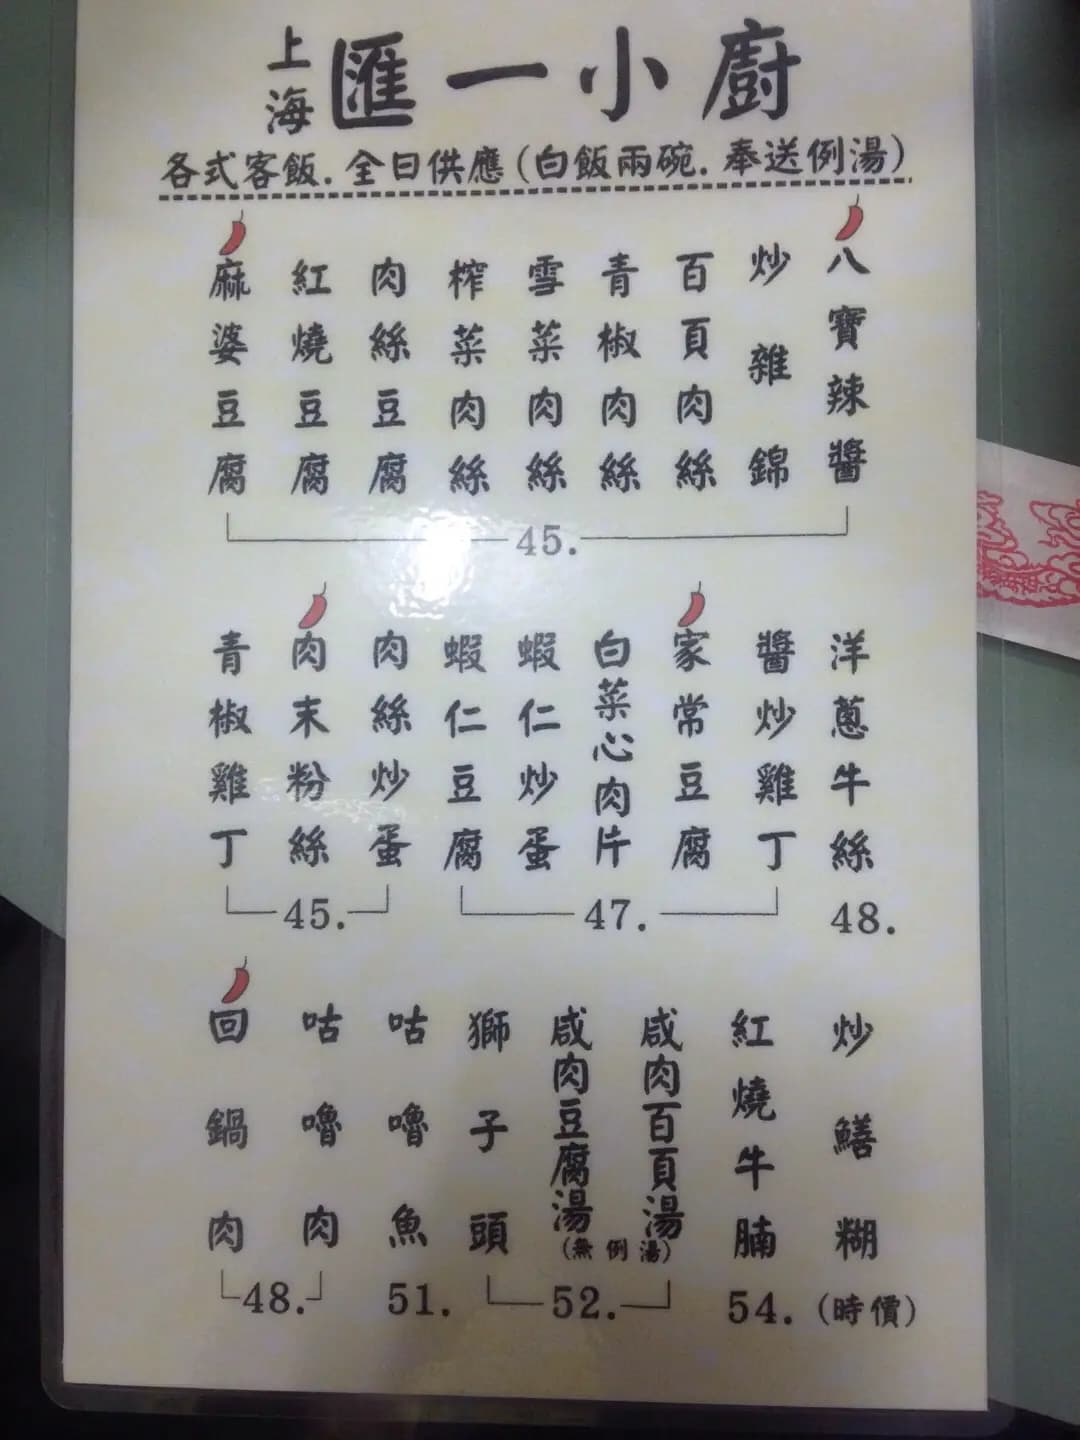 上海 匯一小廚
各式客飯．全日供應（白飯兩碗．奉送例湯）
八寶辣醬
炒雜錦
百頁肉絲
青椒肉絲
雪菜肉絲
榨菜肉絲
肉絲豆腐
紅燒豆腐
麻婆豆腐
45.
洋蔥牛絲
48.
醬炒雞丁
家常豆腐
白菜心肉片
蝦仁炒蛋
蝦仁豆腐
47.
肉絲炒蛋
肉末粉絲
青椒雞丁
45.
炒鱔糊
(時價)
紅燒牛腩
54.
咸肉百頁湯
咸肉豆腐湯
(無例湯)
獅子頭
52.
咕嚕魚
51.
咕嚕肉
回鍋肉
48.